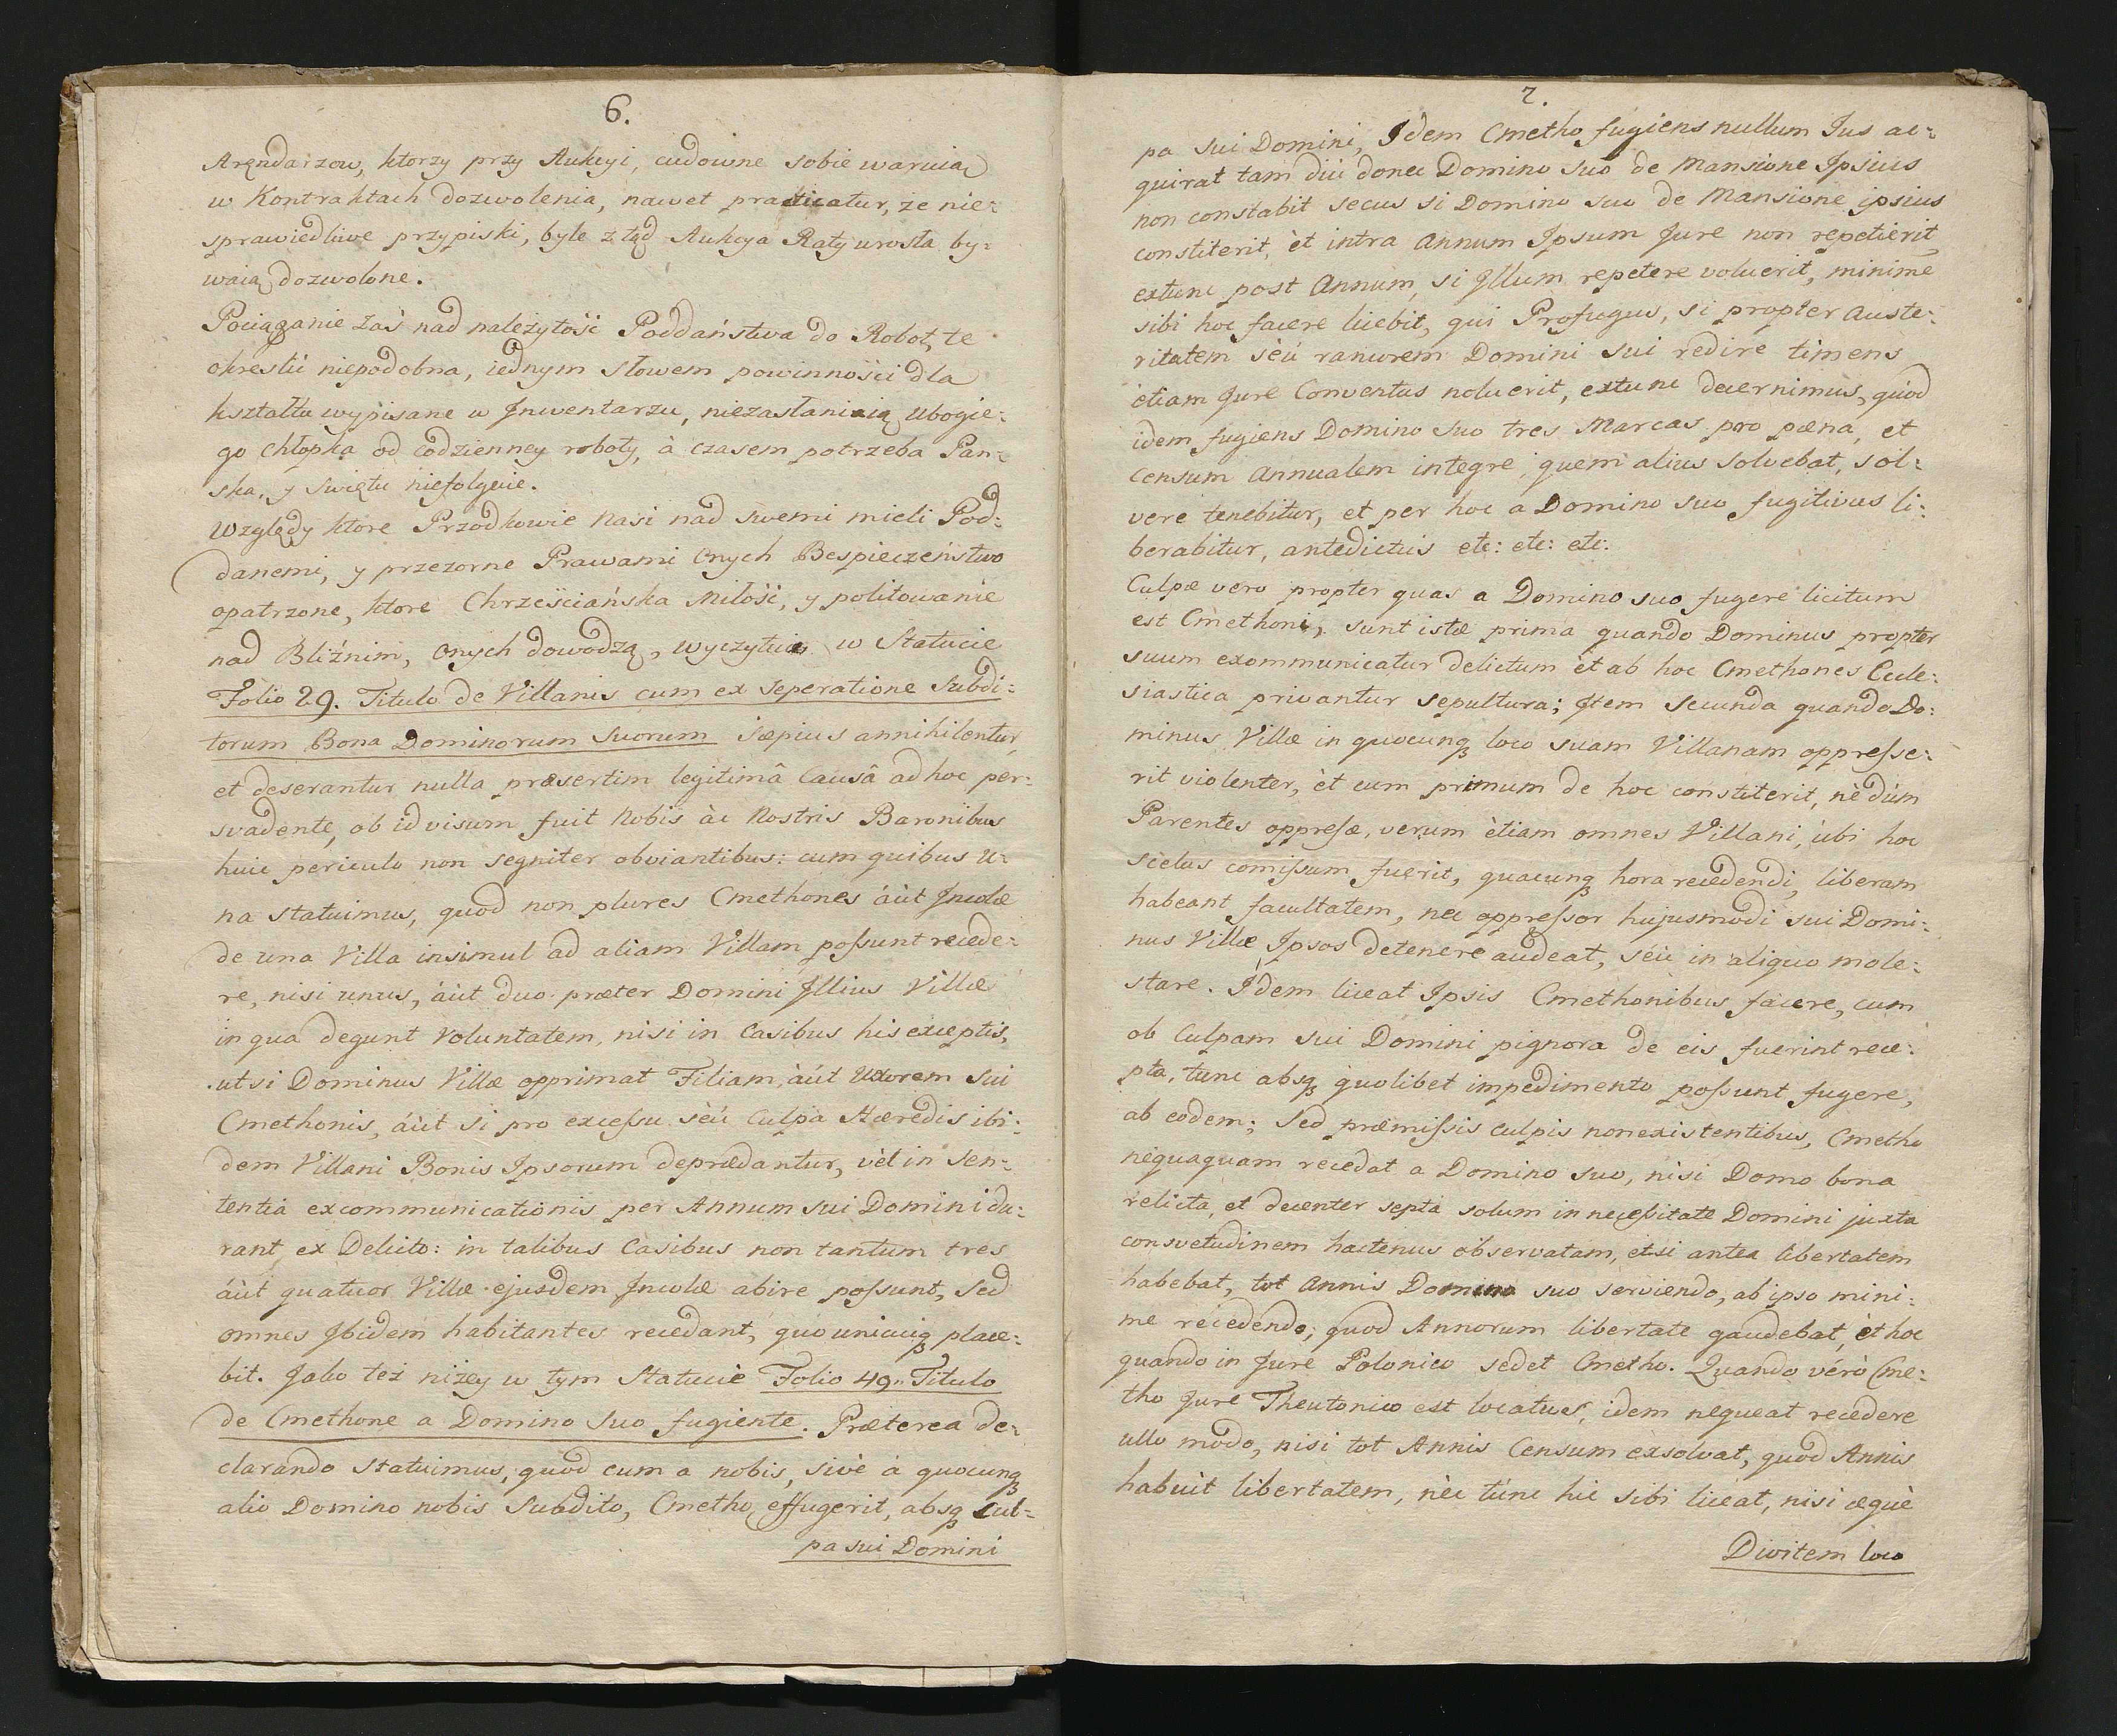 6.
Aręndarzow, ktorzy przy Aukcyi, cudowne sobie waruią
w Kontraktach dozwolenia, nawet practicatur, ze nie-
sprawiedliwe przypiski, byle z tąd Aukcya Raty urosła by-
waią dozwolone.
Pociąganie zaś nad należytość Poddaństwa do Robot, te
okreslić niepodobna, iednym słowem powinności dla
kształtu wypisane w Jnwentarzu, niezasłaniaią Ubogie-
go Chłopka od codzienney roboty, à czasem potrzeba Pan-
ska, y swiętu niefolguie.
Względy ktore Przodkowie Nasi nad swemi mieli Pod-
danemi, y przezorne Prawami Onych Bespieczeństwo
opatrzone, ktore Chrześciańska Miłość, y politowanie
nad Bliźnim, Onych dowodzą, wyczytuię w Statucie
Folio 29. Titulo de Villanis cum ex seperatione Subdi-
torum Bona Dominorum Suorum sæpius annihilentur,
et deserantur nulla præsertim legitimâ Causâ ad hoc per-
svadente, ob id visum fuit Nobis àc Nostris Baronibus
huic periculo non segniter obviantibus: cum quibus U-
na statuimus, quod non plures Cmethones áùt Jncolæ
de una Villa insimul ad aliam Villam poſsunt recede-
re, nisi unus, áùt duo præter Domini Jllius Villæ
in qua degunt Voluntatem, nisi in Casibus his exceptis,
ut si Dominus Villæ opprimat Filiam, àút Uxorem Sui
Cmethonis, áùt si pro exceſsu sèú Culpa Hæredis ibi-
dem Villani Bonis Ipsorum deprædantur, vèl in Sen-
tentia excommunicationis per Annum sui Domini du-
rant ex Delicto: in talibus Casibus non tantum tres
áùt quatuor Villæ ejusdem Jncolæ abire poſsunt, Sed
omnes Jbidem habitantes recedant, quo unicuiq place-
bit. Jako też niżey w tym Statucie Folio 49. Titulo
de Cmethone a Domino Suo fugiente. Præterea de-
clarando statuimus, quod cum a nobis, sivè á quocunq
alio Domino nobis Subdito, Cmetho effugerit, absq Cul-
pa sui Domini
7.
pa sui Domini, Jdem Cmetho fugiens nullum Jus ac-
quirat tam diú donec Domino Suo de Mansione Ipsius
non constabit secus si Domino suo de Mansione ipsius
constiterit, èt intra Annum Ipsum Jure non repetierit,
extunc post Annum, si Jllum repetere voluerit, minime
sibi hoc facere licebit, qui Profugus, si propter auste-
ritatem sèú rancorem Domini sui redire timens
ètiam Jure Conventus noluerit, extunc decernimus, quòd
idem fugiens Domino Suo tres Marcas pro pæna, et
Censum Annualem integre, quem alius solvebat, sol-
vere tenebitur, et per hoc a Domino suo fugitivus li-
berabitur, antedictis etc: etc: etc:
Culpæ vero propter quas a Domino suo fugere licitum
est Cmethoni, sunt istæ prima quando Dominus propter
suum exommunicatur delictum èt ab hoc Cmethones Eccle-
siastica privantur sepultura; Jtem Secunda quando Do-
minus Villæ in quocunq loco suam Villanam oppreſse-
rit violenter, èt cum primum de hoc constiterit, nèdùm
Parentes oppreſsæ, verum ètiam omnes Villani, ùbi hoc
scelus comiſsum fuerit, quacunq hora recedendi, liberam
habeant facultatem, nec oppreſsor hujusmodi sui Domi-
nus Villæ Ipsos detenere audeat, séù in aliquo mole-
stare. Jdem liceat Ipsis Cmethonibus facere, cum
ob Culpam sui Domini pignora de eis fuerint rece-
pta, tunc absq quolibet impedimento poſsunt fugere,
ab eodem; Sed præmiſsis culpis non existentibus, Cmetho
nequaquam recedat a Domino suo, nisi Domo bona
relicta, et decenter septa solum in neceſsitate Domini juxta
consvetudinem hactenus observatam, etsi antea libertatem
habebat, tot Annis Domino suo serviendo, ab ipso mini-
me recedendo; quod Annorum libertate gaudebat, èt hoc
quando in Jure Polonico sedet Cmetho. Quando vérò Cme-
tho Jure Theutonico est locatus, idem nequeat recedere
ullo modo, nisi tot Annis Censum exsolvat, quod Annis
habuit libertatem, nèc túnc hic sibi liceat, nisi æquè
Divitem loco